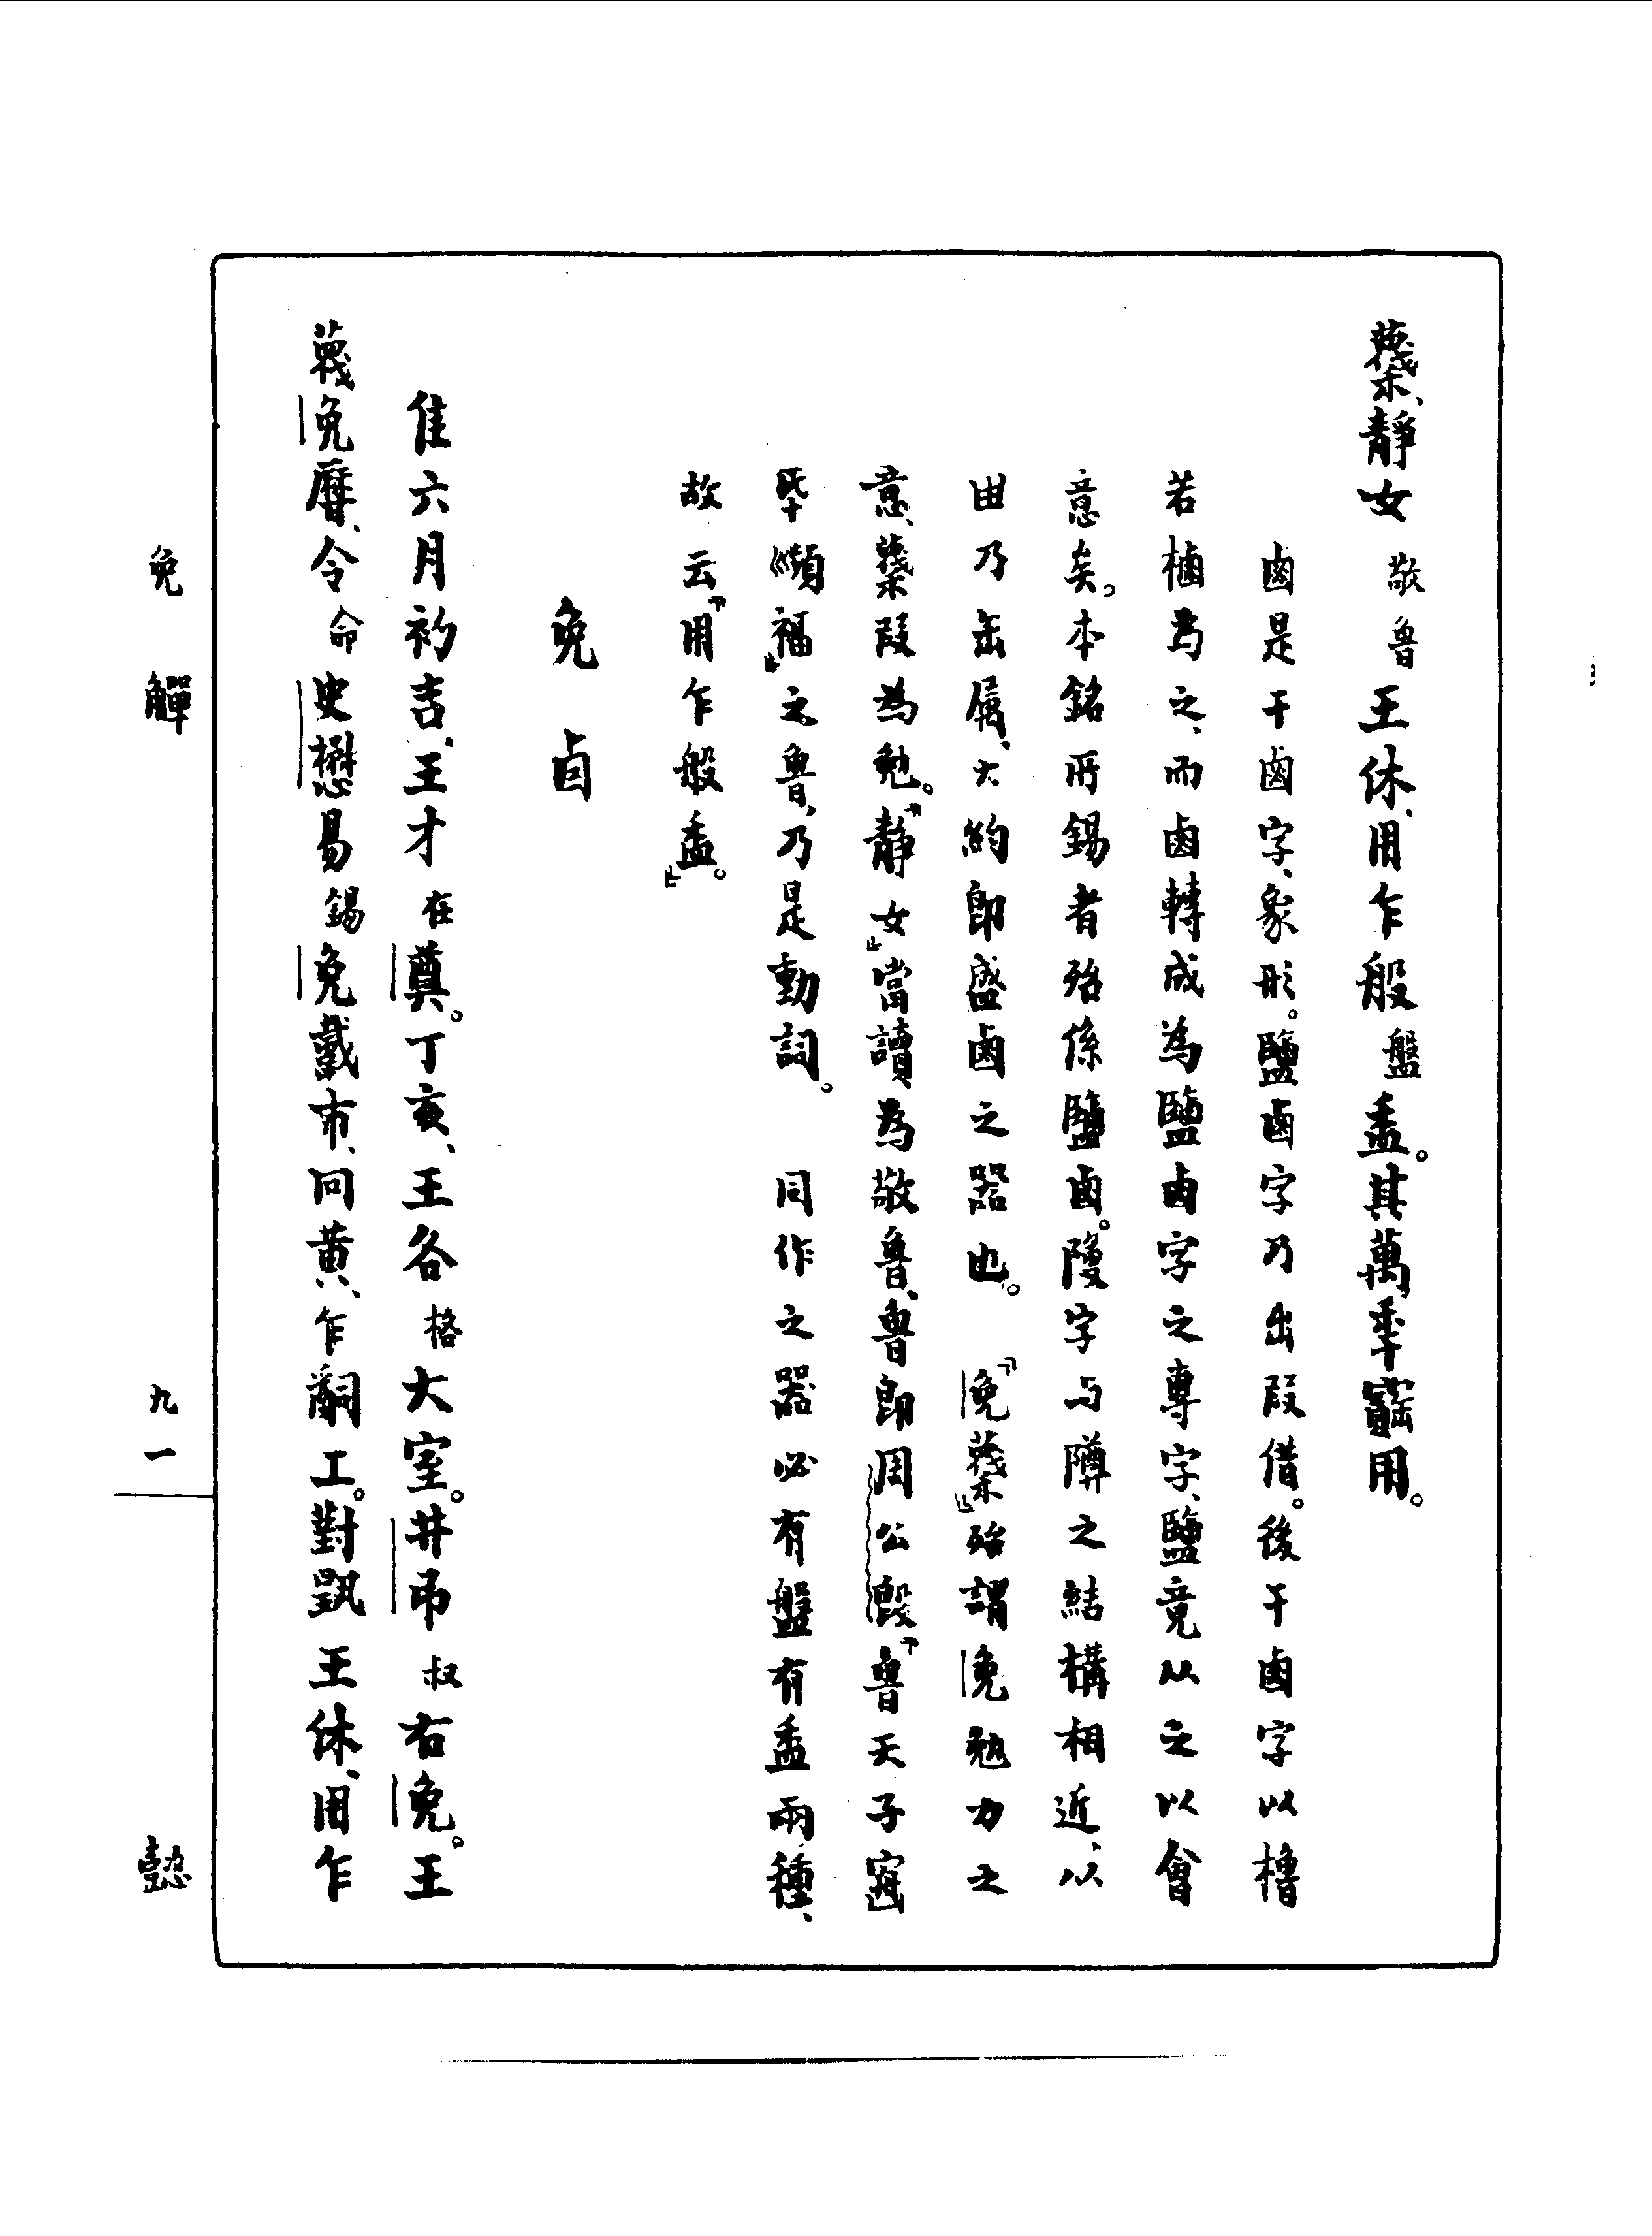 蔑、靜女敬魯王休、用乍般盤盉。其萬年寶用。
鹵是干鹵字、象形。鹽鹵字乃出叚借。後干鹵字以櫓
若樐為之、而鹵轉成為鹽鹵字之專字、鹽竟从之以會
意矣。本銘所錫者殆係鹽鹵。字与隣之結構相近、以
由乃缶属、大約即盛鹵之器也。『免蔑』殆謂免勉力之
意、蔑叚為勉。『靜女』當讀為敬魯、魯即周公殷『魯天子
厥瀕福』之魯、乃是動詞。 同作之器必有盤有盉兩種、
故云『用乍般盉。』
免卣
隹六月初吉、王才在奠。丁亥、王各格大室。井弔叔右免。王
蔑免曆、令命史懋易錫免市、冋黃、乍嗣工。對王休、用乍
免觶 九一